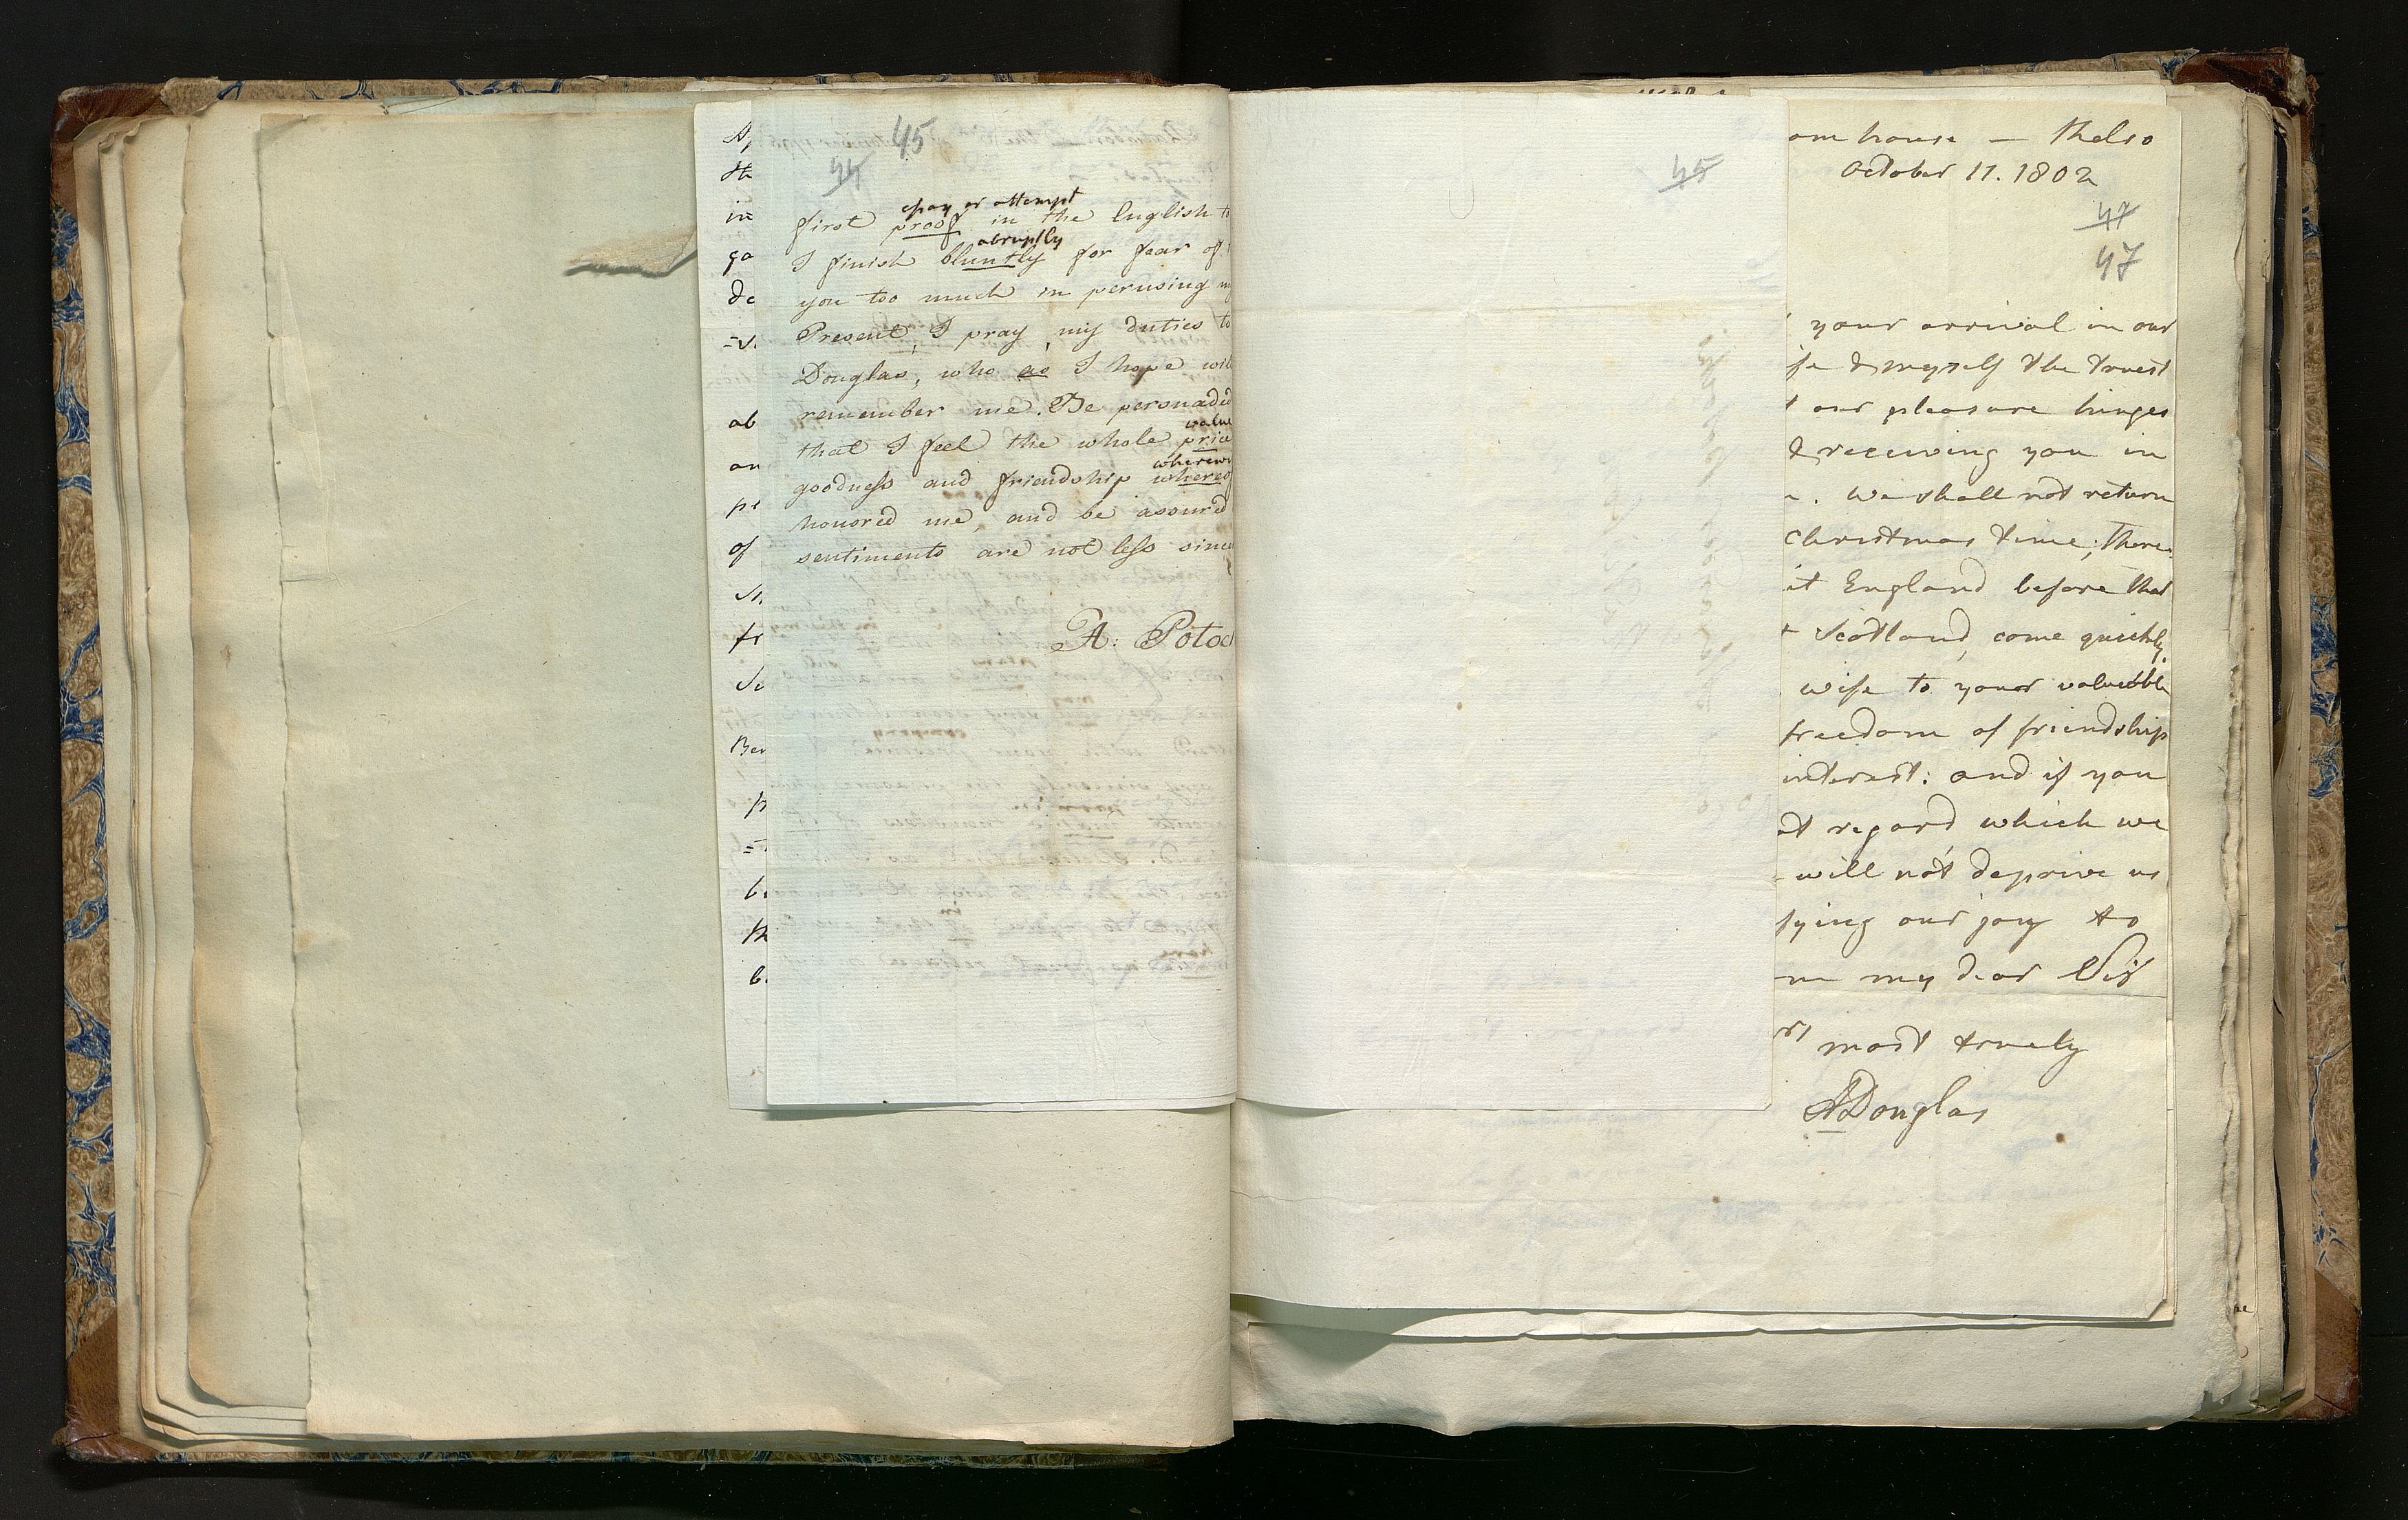 45
44
essay or attempt
first proof in the English t
abruptly
I finish bluntly for fear of
you too much in perusing m
Present, I pray, my duties to
Douglas, who as I hope wil
remember me. Be persuaded
value
that I feel the whole price
wherew
goodness and friendship where
honored me, and be assured
sentiments are not less since
A: Potoc
in
ga
de
ab
an
pe
of
fr
Ber
b.
th
b.
45
om house — Thelso
October 11. 1802
47
47
your arrival in our
fe & myself the truest
our pleasure hinges
& receiving you in
. We shall not return
Christmas time; there
it England before that
Scotland, come quickly
wife to your valuable
freedom of friendship
interest: and if you
at regard which we
will not deprive us
fying our joy to
me my dear Sir
rs most truely
ADouglas